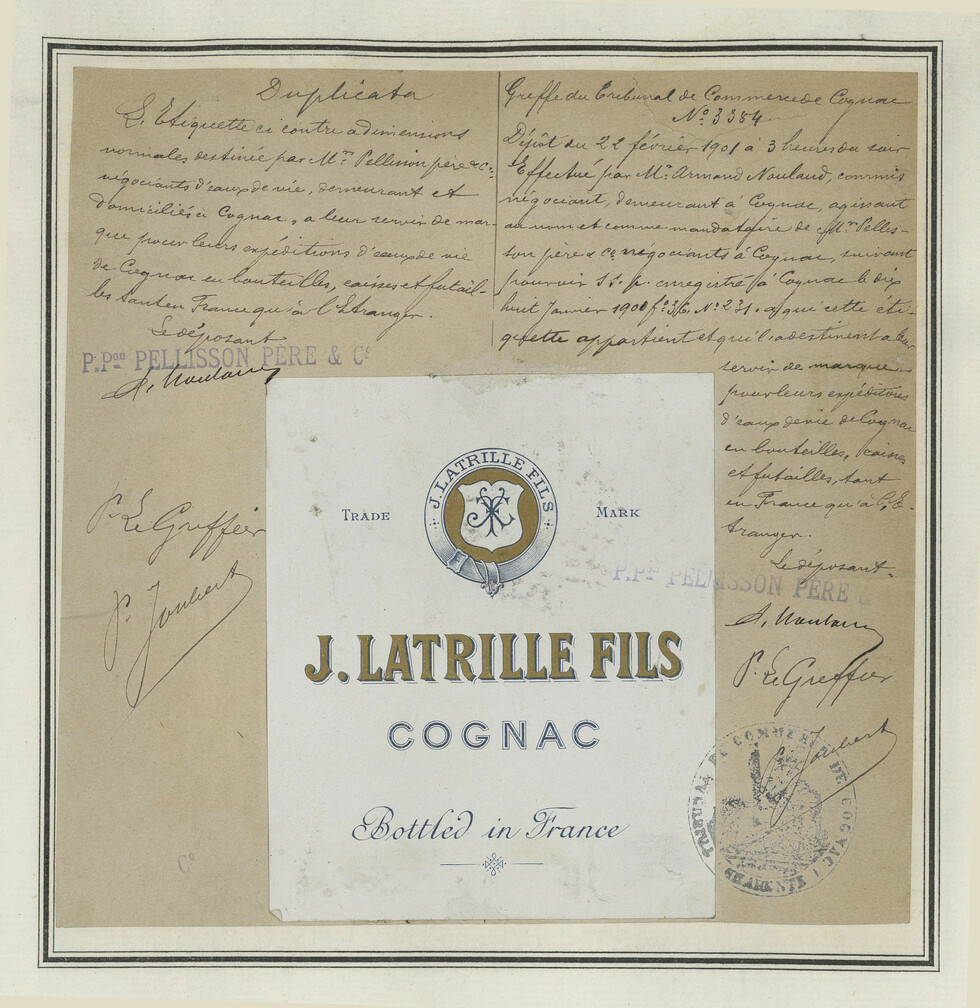 Duplicata
L'Etiquette ci contre a dimensions
normales destinée par Mrs Pellisson père & Cie
négociants d'eaux de vie, demeurant et
domiciliés à Cognac, a leur servir de mar-
que pour leurs expéditions d'eaux de vie
de Cognac en bouteilles, caisses et futail-
les tant en France qu'à l'Etranger.
Le déposant
P. Pon PELLISSON PÈRE & Cie
P. Le Greffier
P. Joubert
Greffe du Tribunal de Commerce de Cognac
No 3384
Dépôt du 22 février 1901 à 3 heures du soir
Effectué par Mr Armand Noulaud, commis
négociant, demeurant à Cognac, agissant
au nom et comme mandataire de Mrs Pellis-
son père & Cie négociants à Cognac, suivant
pouvoir S.S.P. enregistré à Cognac le dix
huit Janvier 1900 fo 36, No 231. a qui cette éti-
quette appartient et qu'il a destinent a leur
servir de marque
pour leurs expéditions
d'eaux de vie de Cognac
en bouteilles, caisses
et futailles, tant
en France qu'à l'E-
tranger.
Le déposant
P. Pon PELLISSON PÈRE &
P. Le Greffier
Joubert
TRIBUNAL DE COMMERCE DE COGNAC
CHARENTE
J. LATRILLE FILS
TRADE MARK
J. LATRILLE FILS
COGNAC
Bottled in France
Co